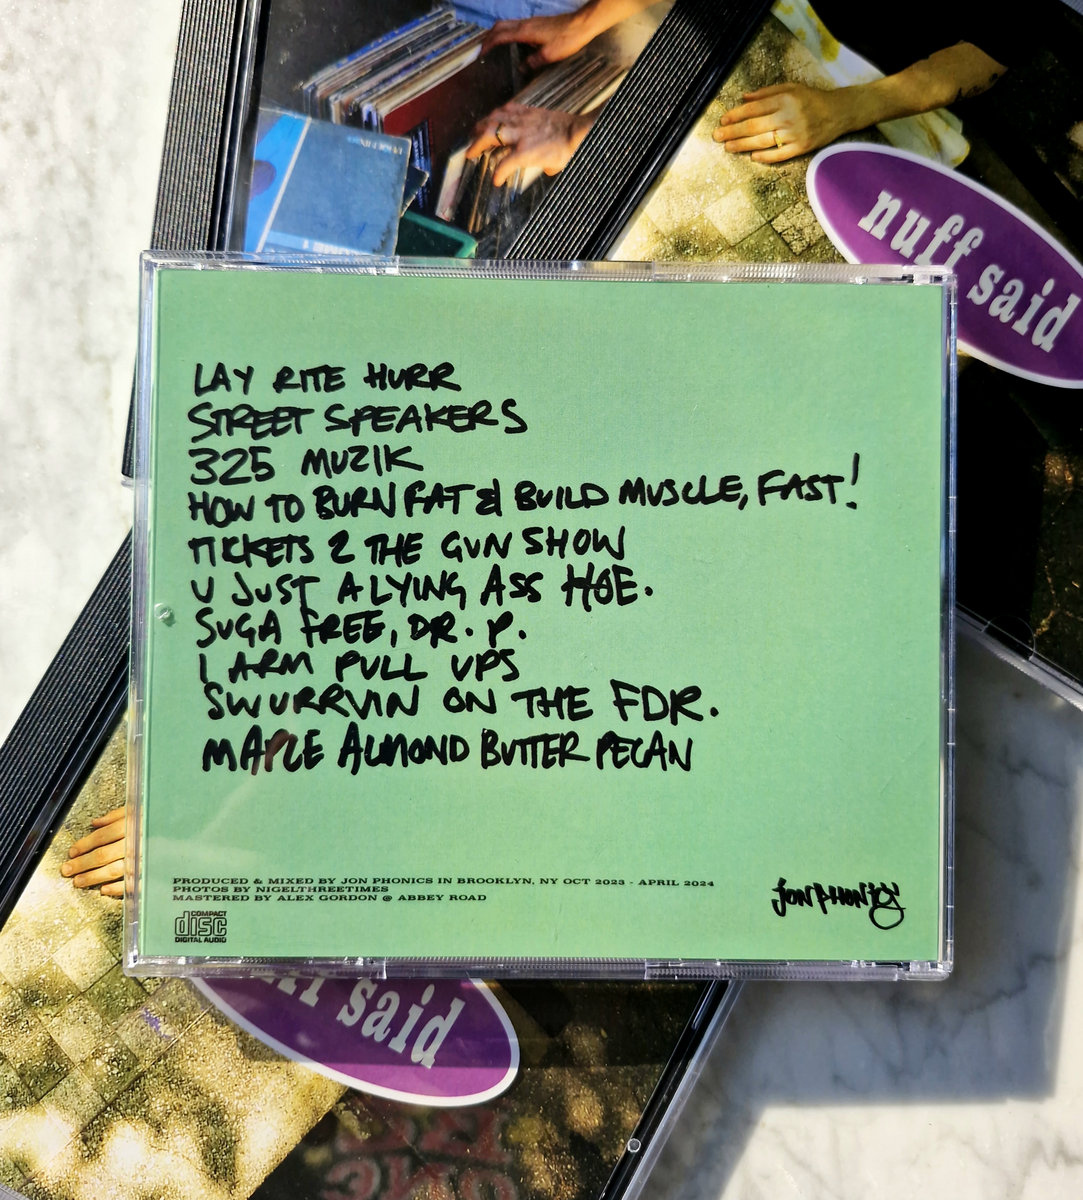 nuff said
LAY RITE HURR
STREET SPEAKERS
325 MUZIK
HOW TO BURN FAT & BUILD MUSCLE, FAST!
TICKETS 2 THE GUN SHOW
U JUST A LYING ASS HOE.
SUGA FREE, DR. P.
1 ARM PULL UPS
SWURRVIN ON THE FDR.
MAPLE ALMOND BUTTER PECAN
PRODUCED & MIXED BY JON PHONICS IN BROOKLYN, NY OCT 2023 - APRIL 2024
PHOTOS BY NIGELTHREETIMES
MASTERED BY ALEX GORDON @ ABBEY ROAD
COMPACT
disc
DIGITAL AUDIO
JON PHONICS
said